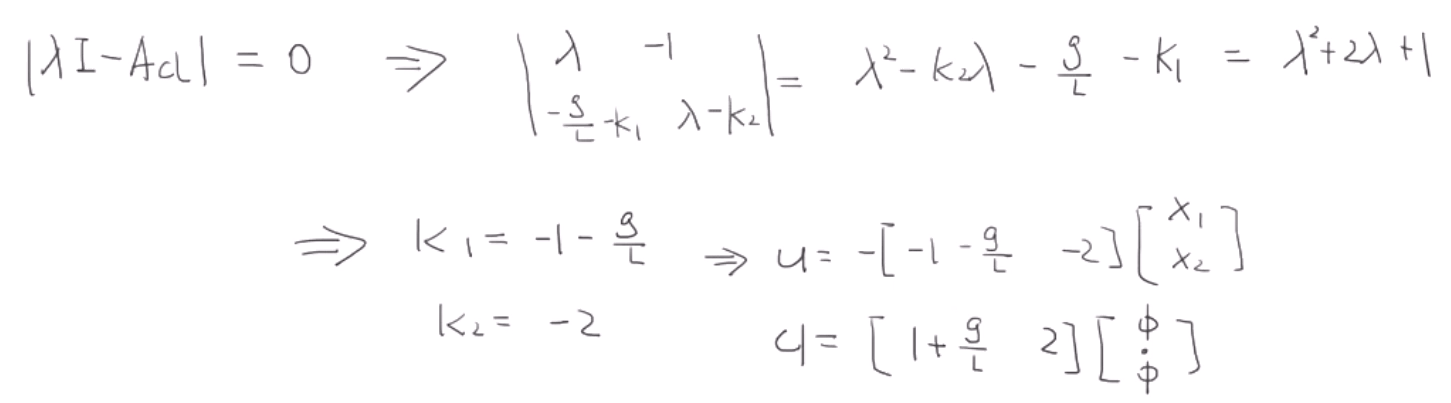 |λI-Acl| = 0 ⇒ | λ -1 ; -g/L -k₁ λ-k₂ | = λ²-k₂λ - g/L - k₁ = λ²+2λ+1
⇒ k₁ = -1 - g/L ⇒ u = -[-1 - g/L -2] [x₁ ; x₂]
k₂ = -2 u = [1 + g/L 2] [ϕ ; ϕ̇]